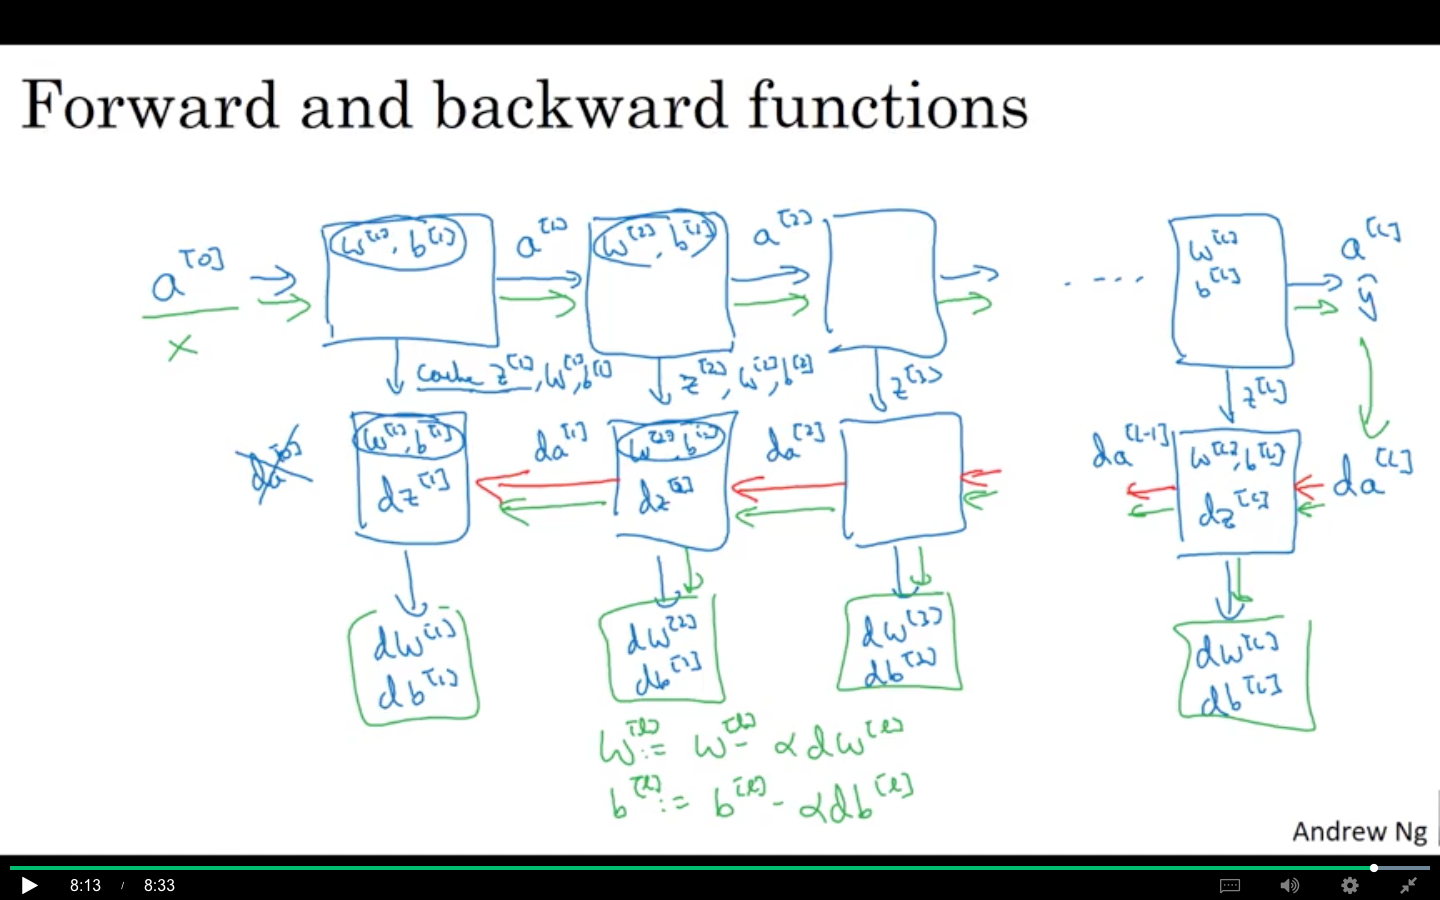 Forward and backward functions
a^[0] w^[1], b^[1] a^[1] w^[2], b^[2] a^[2] .... w^[L] b^[L] a^[L]
x ŷ
cache z^[1], w^[1], b^[1] z^[2], w^[2], b^[2] z^[3] z^[L]
da^[0] w^[1], b^[1] da^[1] w^[2], b^[2] da^[2] da^[L-1] w^[L], b^[L] da^[L]
dz^[1] dz^[2] dz^[L]
dw^[1] dw^[2] dw^[3] dw^[L]
db^[1] db^[2] db^[3] db^[L]
w^[l] := w^[l] - αdw^[l]
b^[l] := b^[l] - αdb^[l]
Andrew Ng
8:13 / 8:33